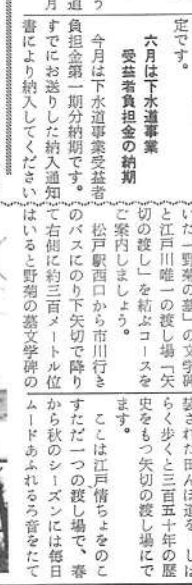 う
月
定です。
六月は下水道事業
受益者負担金の納期
今月は下水道事業受益者
負担金第一期分納期です。
すでにお送りした納入通知
書により納入してください
いた「野菊の墓」の文学碑
と江戸川唯一の渡し場「矢
切の渡し」を結ぶコースを
ご案内しましょう。
松戸駅西口から市川行き
のバスにのり下矢切で降り
て右側に約三百メートル位
はいると野菊の墓文学碑の
された田んぼ道を
らく歩くと三百五十年の歴
史をもつ矢切の渡し場にで
ます。
ここは江戸情ちょをのこ
すただ一つの渡し場で、春
から秋のシーズンには毎日
ムードあふれるろ音をたて